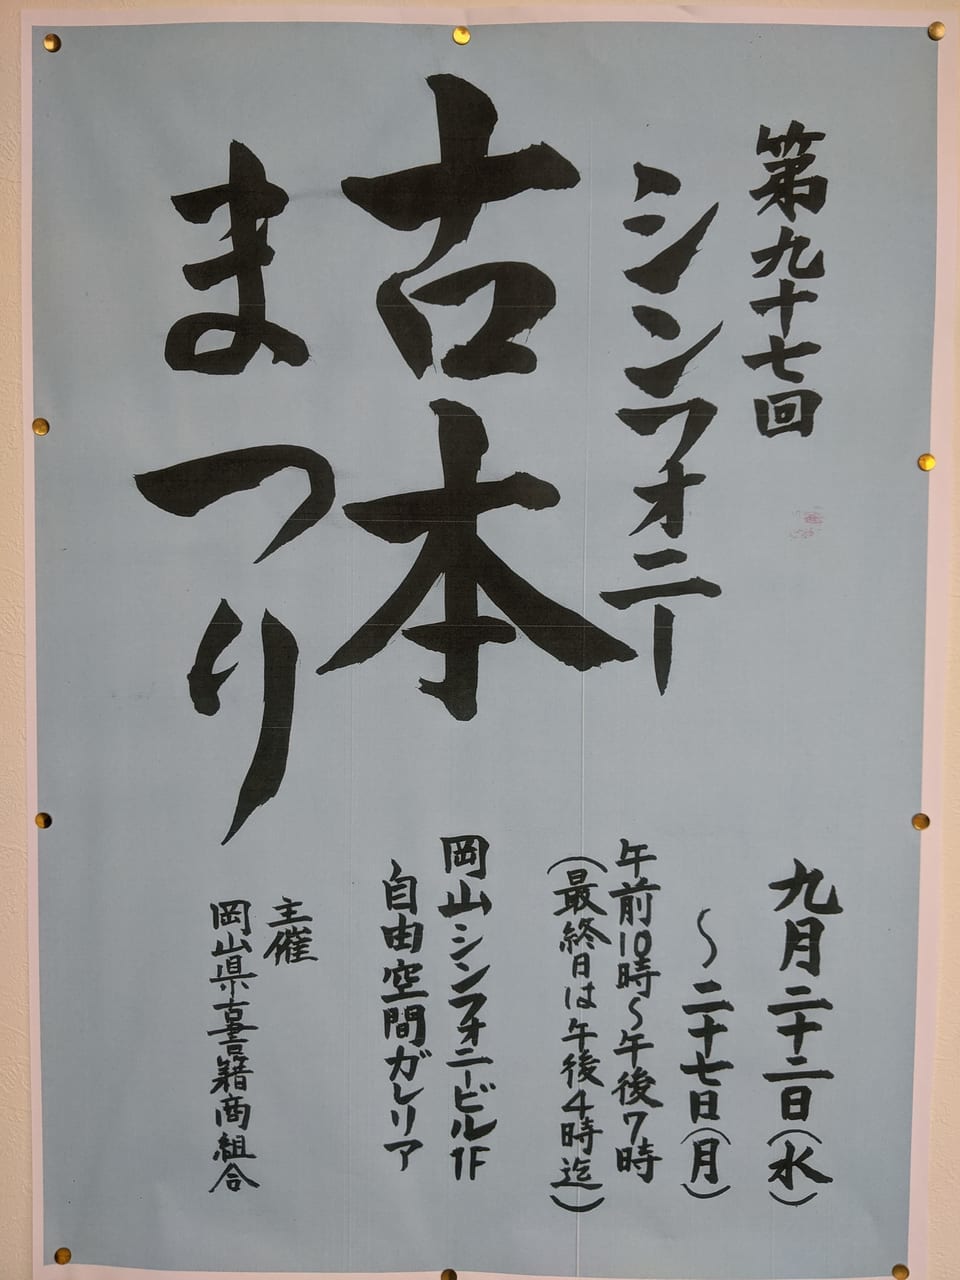 第九十七回
シンフォニー
古本
まつり
九月二十二日(水)
〜二十七日(月)
午前10時〜午後7時
(最終日は午後4時迄)
岡山シンフォニービル1F
自由空間ガレリア
主催
岡山県古書籍商組合